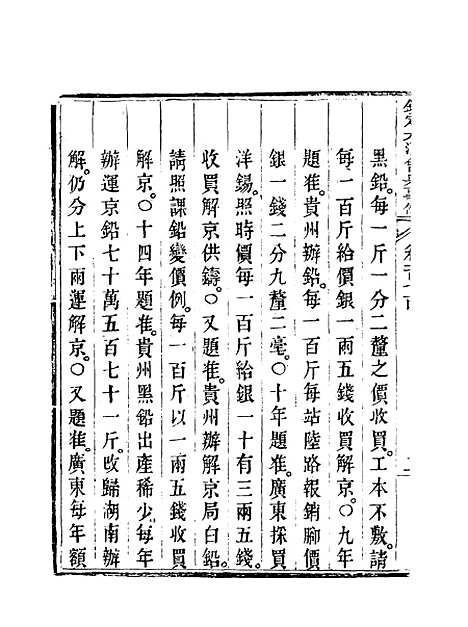 欽定大清會典事例
黑鉛。每一斤一分二釐之價收買。工本不敷。請
每一百斤給價銀一兩五錢收買解京。〇九年
題准。貴州辦鉛。每一百斤每站陸路報銷腳價
銀一錢二分九釐二毫。〇十年題准。廣東採買
洋錫。照時價每一百斤給銀一十有三兩五錢。
收買解京供鑄。〇又題准。貴州辦解京局白鉛。
請照課鉛變價例。每一百斤以一兩五錢收買
解京。〇十四年題准。貴州黑鉛出產稀少。每年
辦運京鉛七十萬五百七十一斤。改歸湖南辦
解。仍分上下兩運解京。〇又題准。廣東每年額